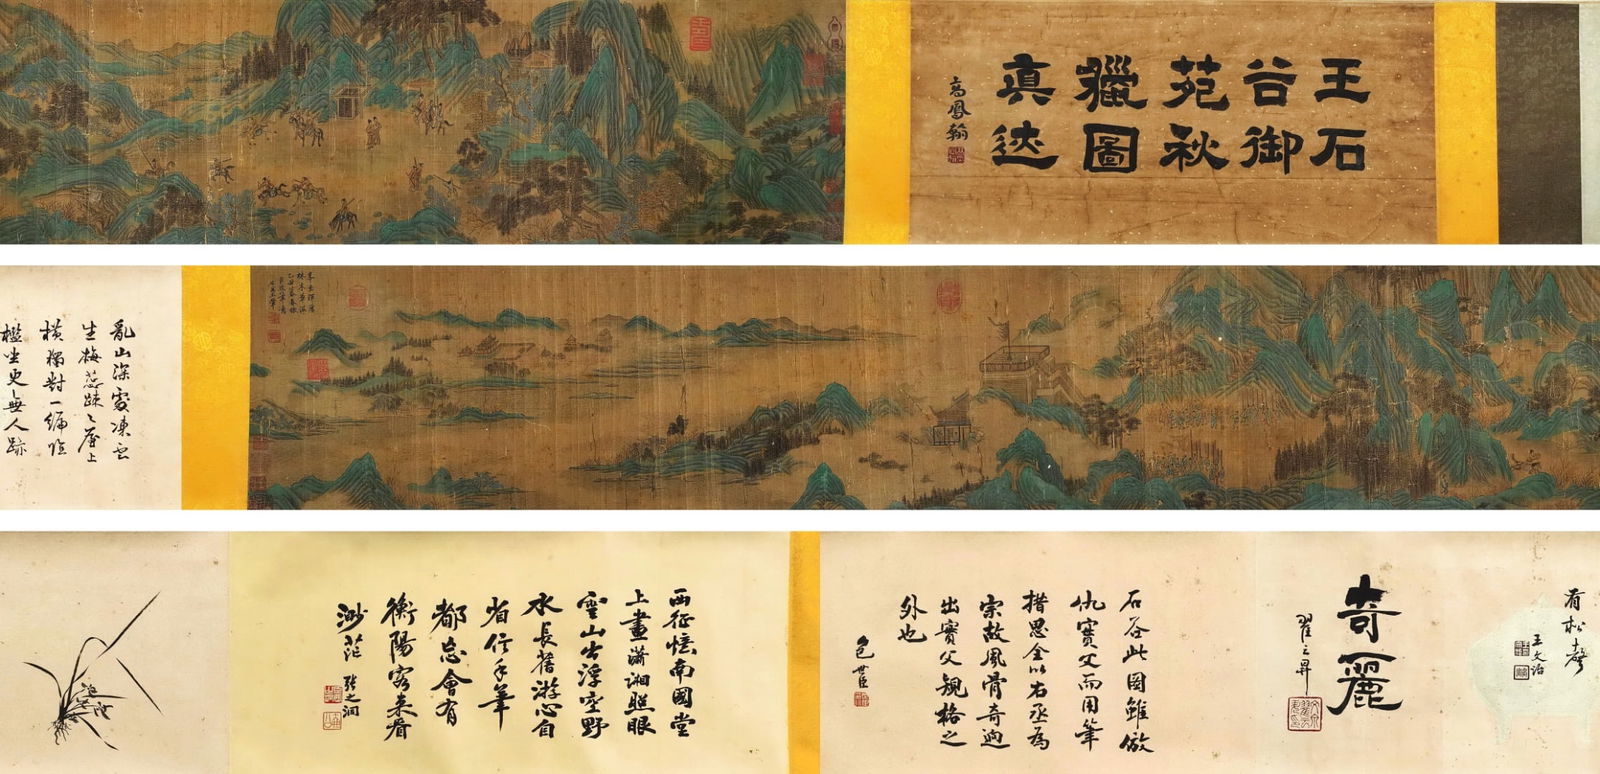 王石
谷御
苑秋
獵圖
真迹
高鳳翰
亂山深處凍雲
生梅蕊疎々屋上
橫獨對一編臨
檻坐更無人跡
有松聲
王文治
奇麗
翟云升
石谷此圖雖倣
仇實父而用筆
措思全以右丞為
宗故風骨奇逈
出實父規格之
外也
包世臣
西征憶南國堂
上畫瀟湘照眼
雲山出浮空野
水長舊游心自
省信手筆
都忘會有
衡陽客來看
渺茫 張之洞